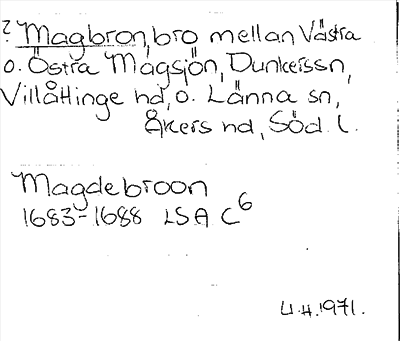 ? Magbron, bro mellan Västra
o. Östra Magsjön, Dunkerssn,
Villåttinge hd, o. Länna sn,
Åkers hd, Söd. l.
Magdebroon
1683-1688 LSA C6
U.H. 1971.